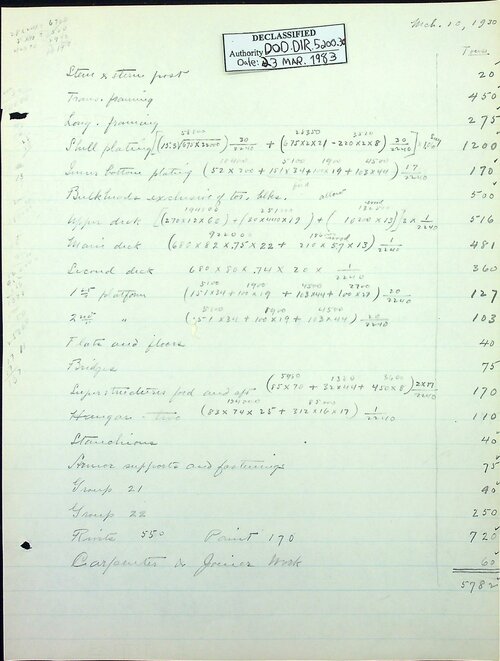 Mch. 10, 1930
DECLASSIFIED
Authority DOD.DIR.5200.30
Date: 23 MAR. 1983
Tons
Stem & stern post 20
Trans. framing 450
Long. framing 275
Shell plating 1200
Inner bottom plating (52 x 200 + 151 x 34 + 100 x 19 + 103 x 44) 17/2240 170
Bulkheads exclusive of tor. blks. 500
Upper deck 516
Main deck (680 x 82 x .75 x 22 + 210 x 57 x 13) 1/2240 481
Second deck 680 x 80 x .74 x 20 x 1/2240 360
1st platform (151 x 34 + 100 x 19 + 103 x 44 + 100 x 27) 20/2240 127
2nd " (151 x 34 + 100 x 19 + 103 x 44) 20/2240 103
Flats and floors 40
Bridges 75
Superstructures fwd and aft (85 x 70 + 32 x 44 + 450 x 8) 2x17/2240 170
Hangar (83 x 74 x 25 + 312 x 16 x 17) 1/2240 110
Stanchions 40
Armor supports and fastenings 75
Group 21 90
Group 22 250
Rivets 550 Paint 170 720
Carpenter & Joiner Work 60
5782